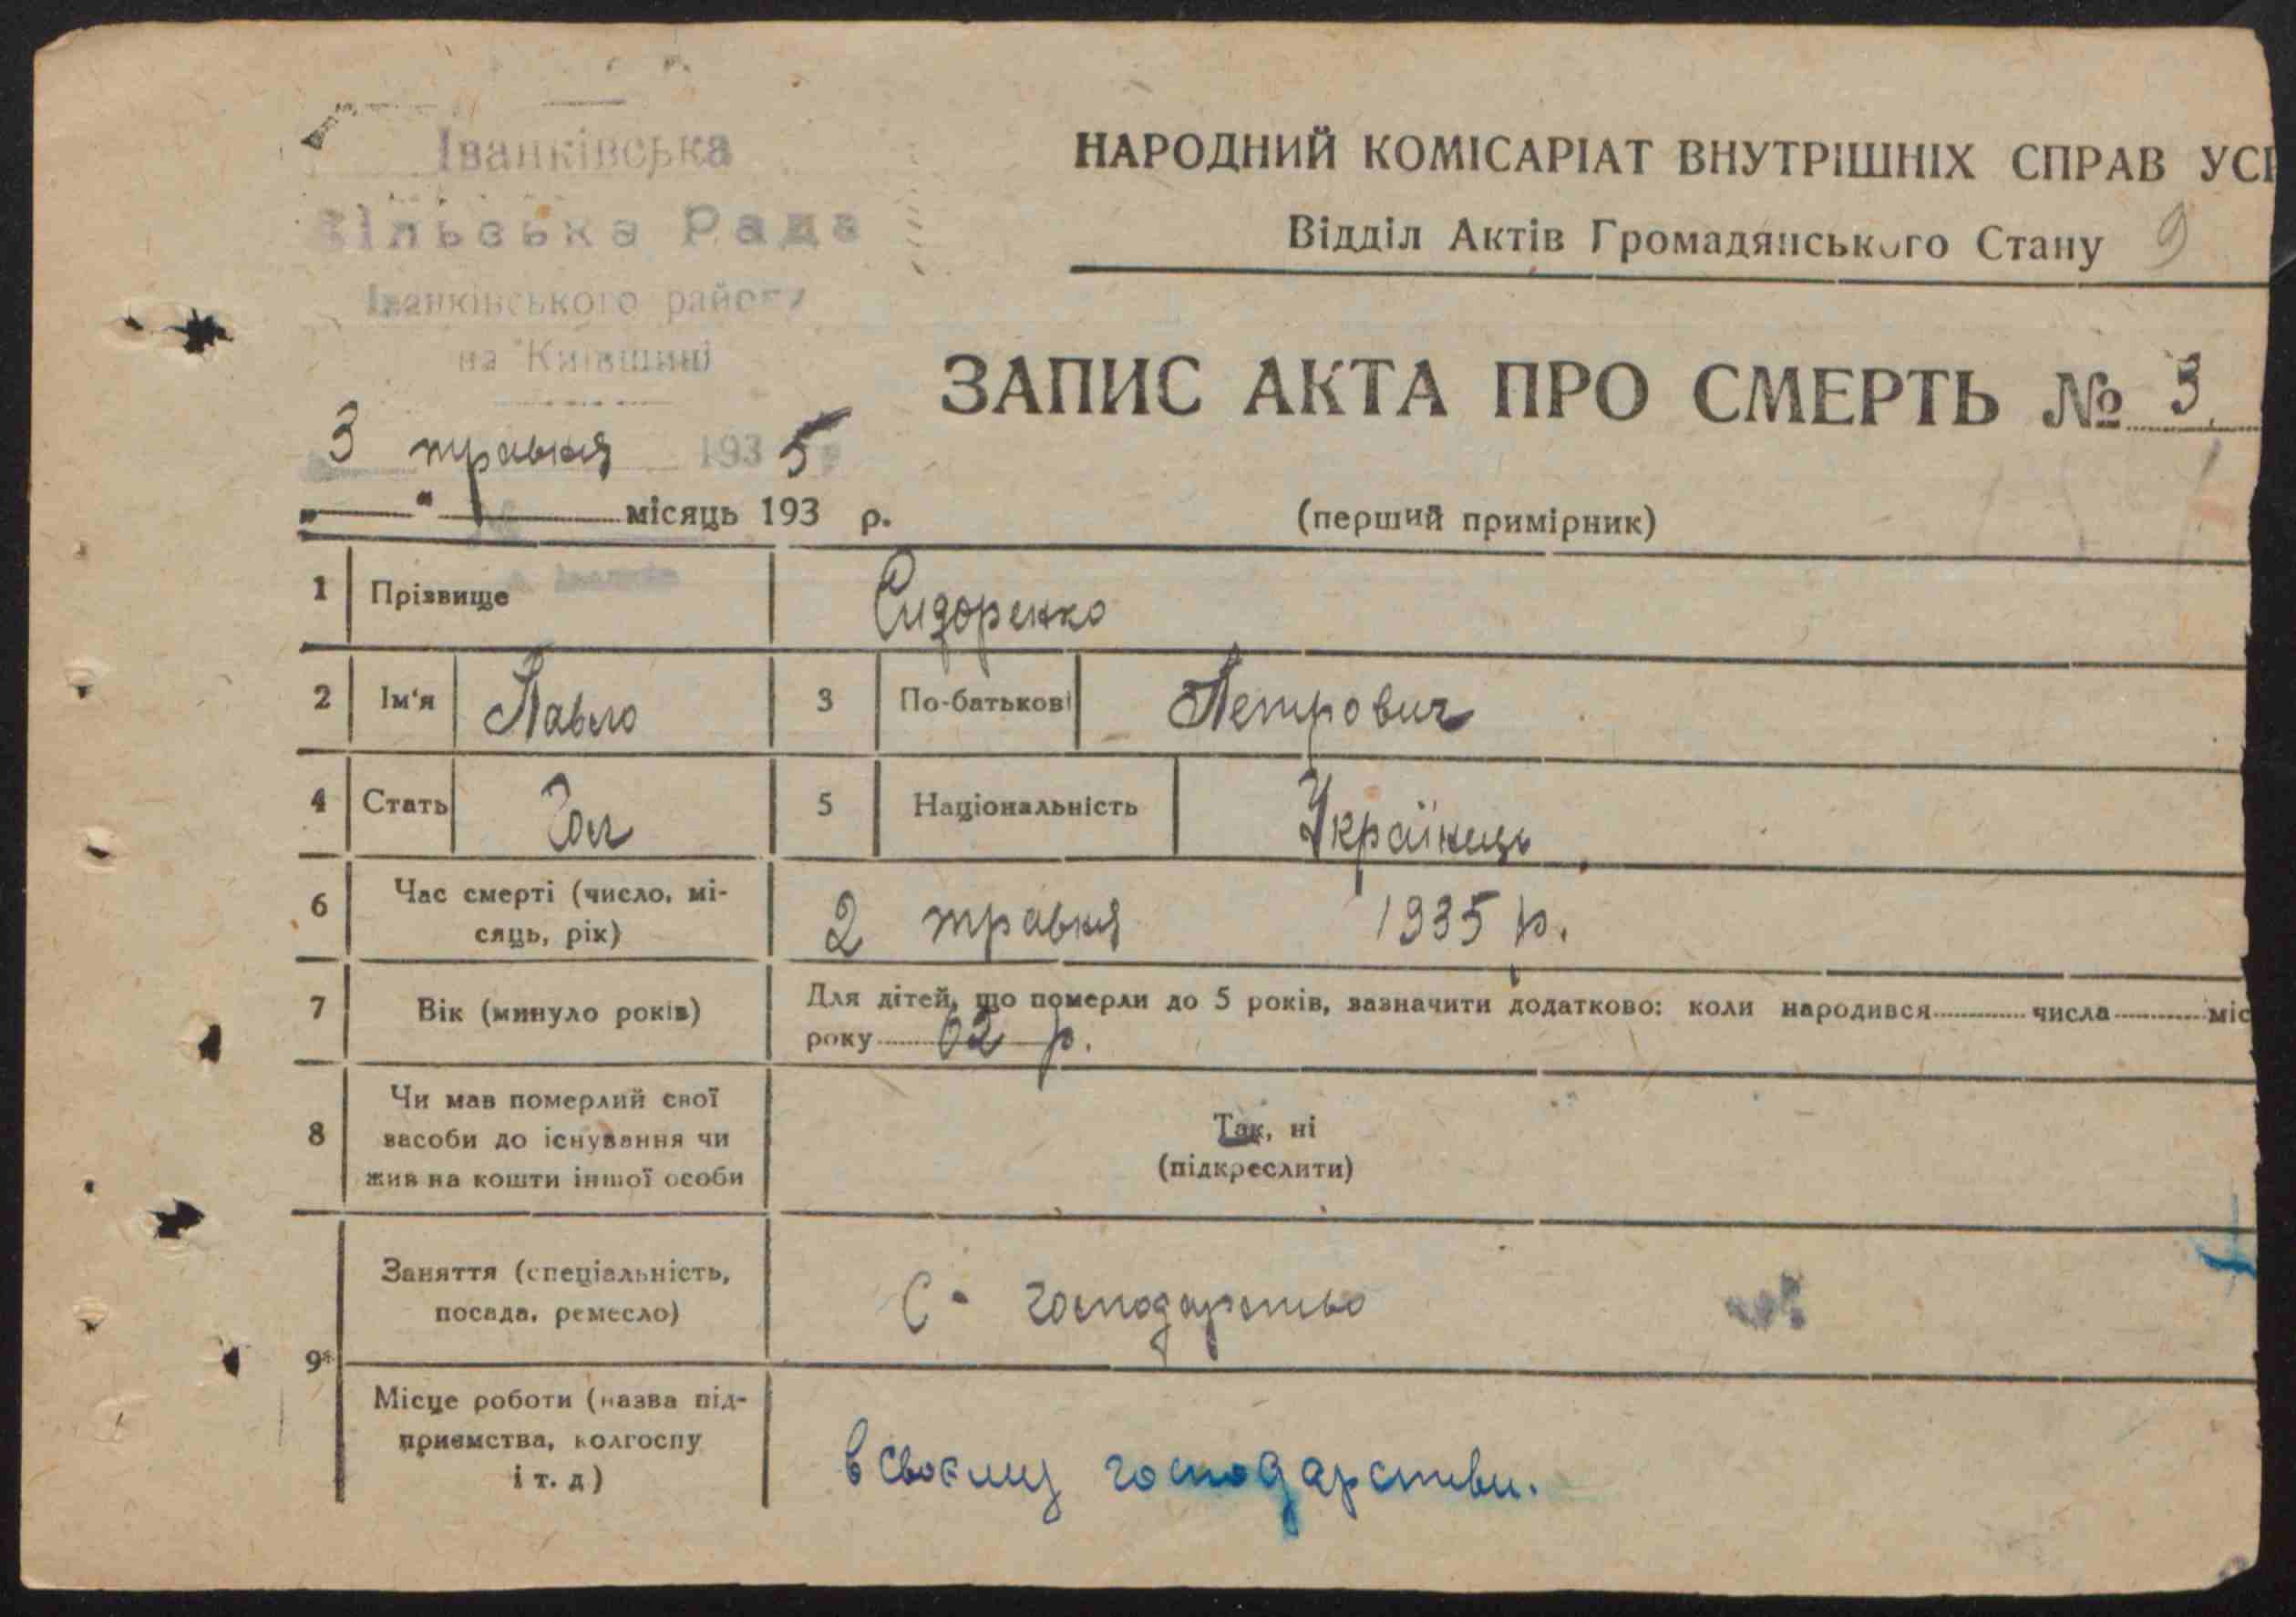 Іванківська
Сільська Рада
Іванківського району
на Київщині
3 травня 1935
НАРОДНИЙ КОМІСАРІАТ ВНУТРІШНІХ СПРАВ УС
Відділ Актів Громадянського Стану 9
ЗАПИС АКТА ПРО СМЕРТЬ № 3
„ “ місяць 193 р.
(перший примірник)
1 Прізвище Сидоренко
2 Ім'я Павло 3 По-батькові Петрович
4 Стать Чол 5 Національність Українець
6 Час смерті (число, мі-
сяць, рік) 2 травня 1935 р.
7 Вік (минуло років) Для дітей, що померли до 5 років, зазначити додатково: коли народився числа міс
року 62 р.
8 Чи мав померлий свої
засоби до існування чи
жив на кошти іншої особи
Так, ні
(підкреслити)
9 Заняття (спеціальність,
посада, ремесло) С. господарство
Місце роботи (назва під-
приємства, колгоспу
і т. д)
в своєму господарстви.